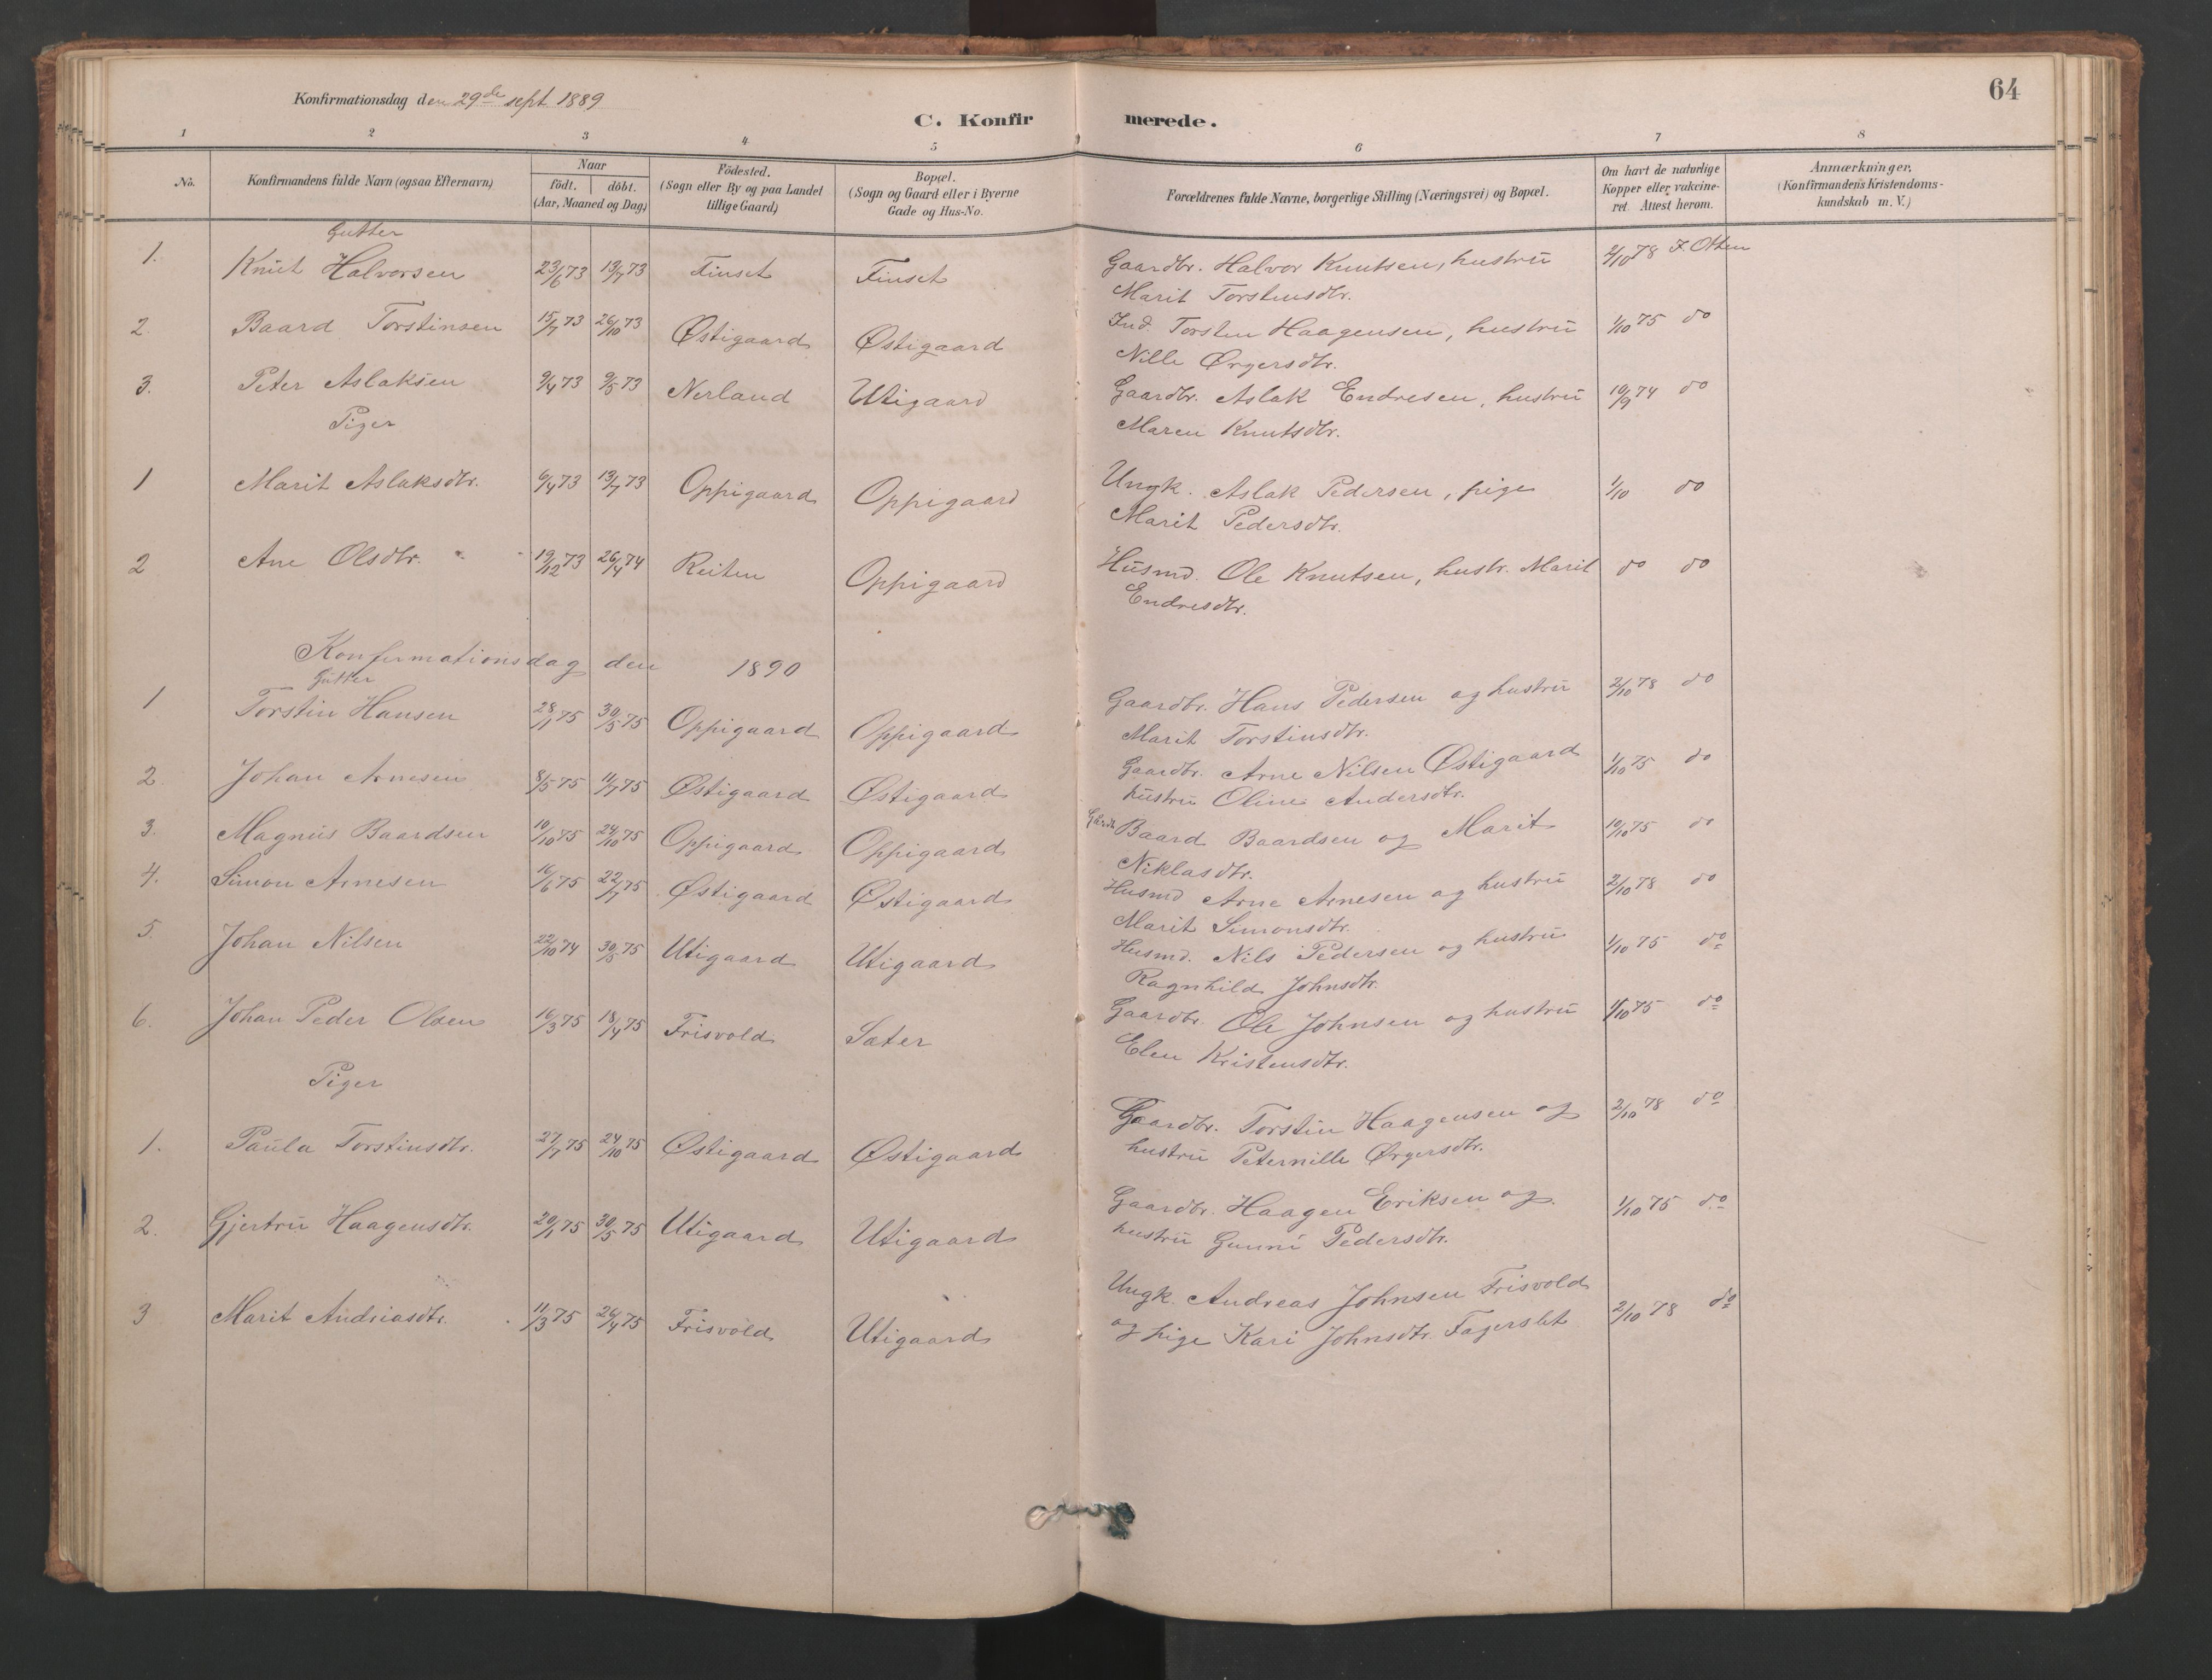 64
Konfirmationsdag den 29de sept 1889
C. Konfirmerede.
1 2 3 4 5 6 7 8
No. Konfirmandens fulde Navn (ogsaa Efternavn) Naar födt. döbt. (Aar, Maaned og Dag) Födested. (Sogn eller By og paa Landet tillige Gaard) Bopæl. (Sogn og Gaard eller i Byerne Gade og Hus-No. Forældrenes fulde Navne, borgerlige Stilling (Næringsvei) og Bopæl. Om havt de naturlige Kopper eller vakcineret. Attest herom. Anmærkninger. (Konfirmandens Kristendomskundskab m. V.)
Gutter
1. Knut Halvorsen 23/6 73 13/7 73 Finset Finset Gaardbr. Halvor Knutsen, hustru 2/10 78 F. Otten
Marit Torstensdtr.
2. Baard Torstinsen 15/7 73 26/10 73 Østigaard Østigaard Ind. Torsten Haagensen, hustru 1/10 75 do
Nille Ørgersdtr.
3. Peter Aslaksen 9/4 73 9/5 73 Nerland Utigaard Gaardbr. Aslak Endresen, hustru 10/9 74 do
Maren Knutsdtr.
Piger
1 Marit Aslaksdtr. 6/4 73 13/7 73 Oppigaard Oppigaard Ungk. Aslak Pedersen, pige 1/10 do
Marit Pedersdtr.
2 Ane Olsdtr. 19/12 73 26/4 74 Reiten Oppigaard Husmd. Ole Knutsen, hustr. Marit do do
Endresdtr.
Konfirmationsdag den 1890
Gutter
1 Torstin Hansen 28/1 75 30/5 75 Oppigaard Oppigaard Gaardbr. Hans Pedersen og hustru 2/10 78 do
Marit Torstinsdtr.
2. Johan Arnesen 8/5 75 11/7 75 Østigaard Østigaard Gaardbr. Arne Nilsen Østigaard 1/10 75 do
hustru Oline Andersdtr.
3. Magnus Baardsen 10/10 75 24/10 75 Oppigaard Oppigaard Gaardbr Baard Baardsen og Marit 10/10 75 do
Niklasdtr.
4. Simon Arnesen 16/6 75 22/7 75 Østigaard Østigaard Husmd Arne Arnesen og hustru 2/10 78 do
Marit Simonsdtr.
5. Johan Nilsen 22/10 74 30/5 75 Utigaard Utigaard Husmd. Nils Pedersen og hustru 1/10 75 do
Ragnhild Johnsdtr.
6. Johan Peder Olsen 16/3 75 18/4 75 Frisvold Sæter Gaardbr. Ole Johnsen og hustru 1/10 75 do
Elen Kristensdtr.
Piger
1. Paula Torstinsdtr. 27/7 75 24/10 75 Østigaard Østigaard Gaardbr. Torstin Haagensen og 2/10 78 do
hustru Peternille Ørgersdtr.
2. Gjertru Haagensdtr. 20/1 75 30/5 75 Utigaard Utigaard Gaardbr. Haagen Eriksen og 1/10 75 do
hustru Gunni Pedersdtr.
3 Marit Andriasdtr. 11/3 75 26/4 75 Frisvold Utigaard Ungk. Andreas Johnsen Frisvold 2/10 78 do
og pige Kari Johnsdtr. Fagerslet